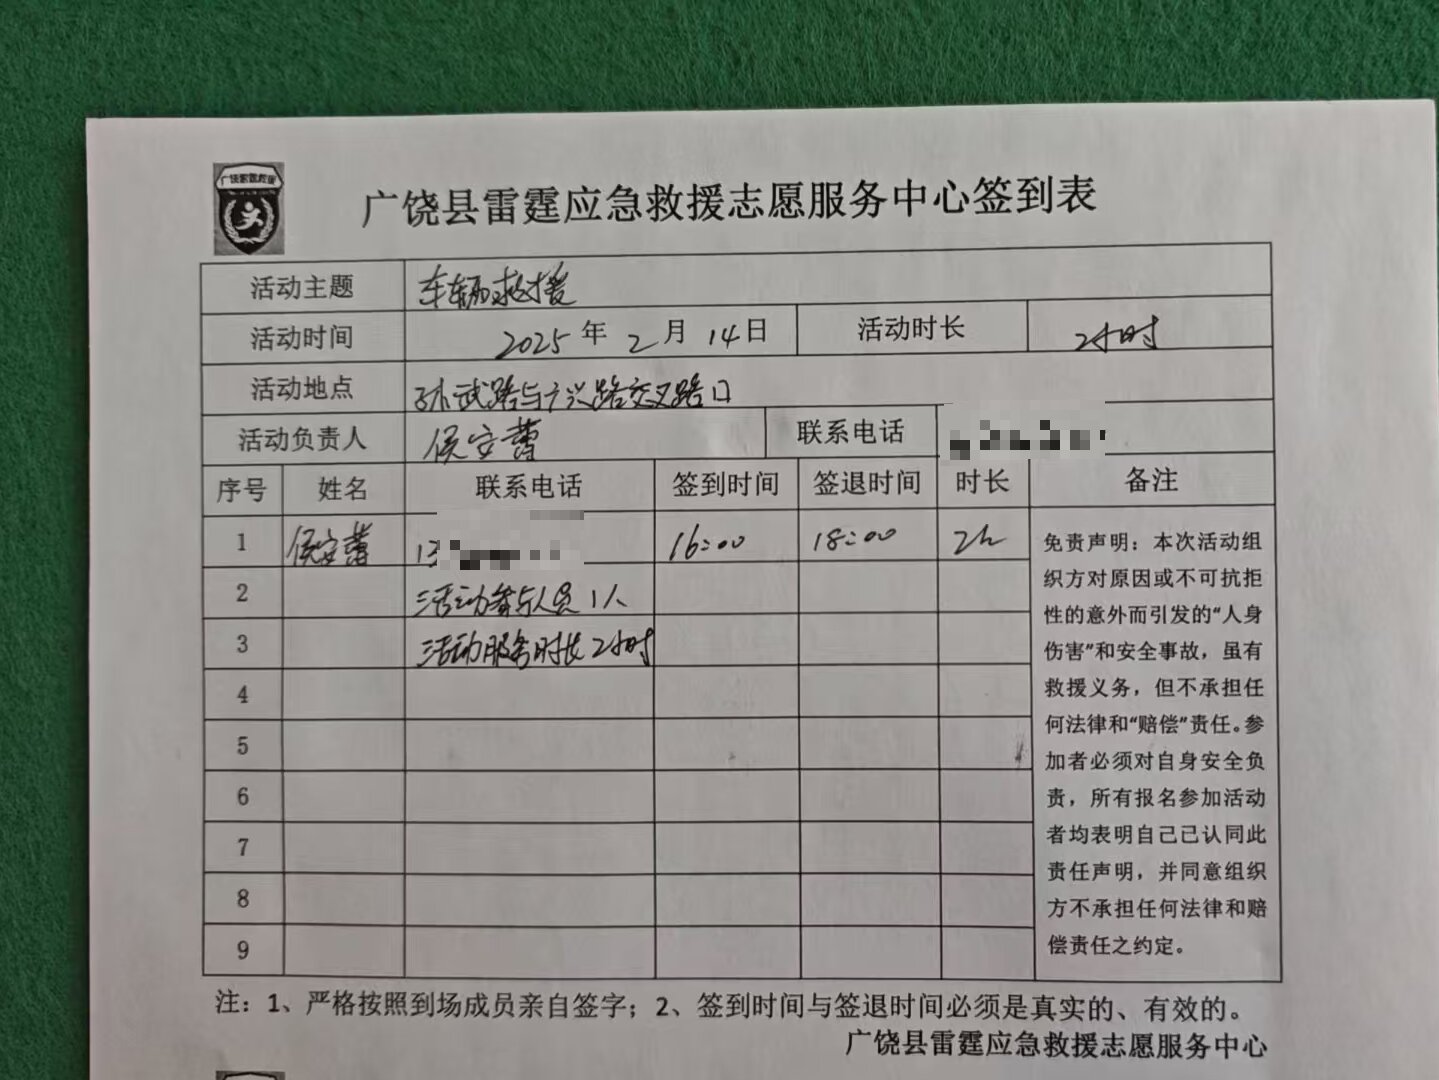 广饶雷霆救援
广饶县雷霆应急救援志愿服务中心签到表
活动主题 车辆救援
活动时间 2025年2月14日 活动时长 2小时
活动地点 孙武路与广兴路交叉路口
活动负责人 侯安蕾 联系电话
序号 姓名 联系电话 签到时间 签退时间 时长 备注
1 侯安蕾 16:00 18:00 2h
2 活动参与人员1人
3 活动服务时长2小时
4
5
6
7
8
9
免责声明：本次活动组
织方对原因或不可抗拒
性的意外而引发的“人身
伤害”和安全事故，虽有
救援义务，但不承担任
何法律和“赔偿”责任。参
加者必须对自身安全负
责，所有报名参加活动
者均表明自己已认同此
责任声明，并同意组织
方不承担任何法律和赔
偿责任之约定。
注：1、严格按照到场成员亲自签字；2、签到时间与签退时间必须是真实的、有效的。
广饶县雷霆应急救援志愿服务中心